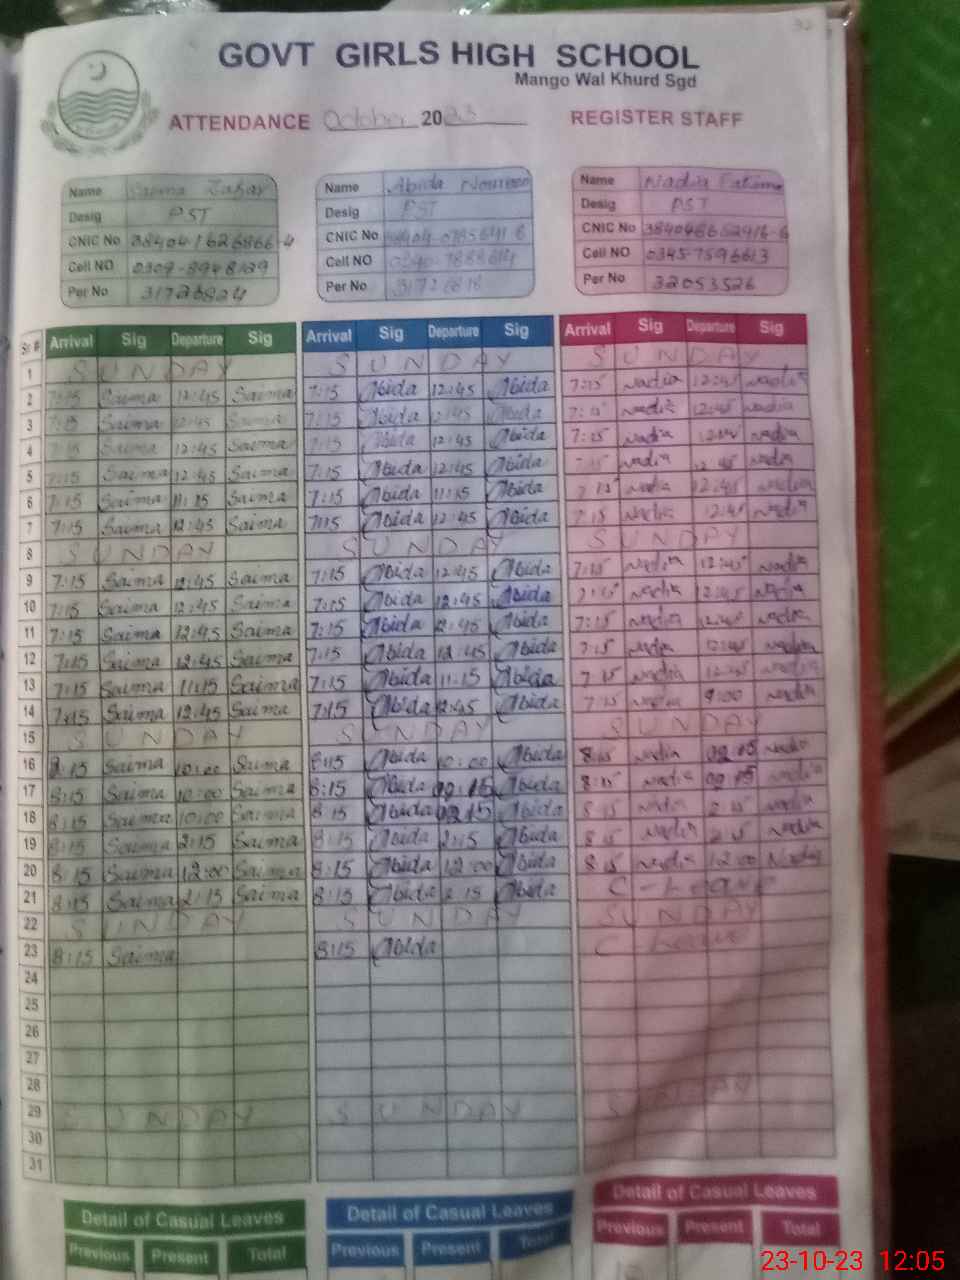 GOVT GIRLS HIGH SCHOOL
Mango Wal Khurd Sgd
ATTENDANCE October 2023 REGISTER STAFF
Name Saima Zafar Name Abida Noureen Name Nadia Fatima
Desig PST Desig PST Desig PST
CNIC No CNIC No CNIC No
Cell NO 0309-8948129 Cell NO Cell NO 0345-7596613
Per No 31726824 Per No Per No 32053526
Sr. # Arrival Sig Departure Sig Arrival Sig Departure Sig Arrival Sig Departure Sig
1 SUNDAY SUNDAY SUNDAY
2 7:15 Saima 12:45 Saima 7:15 Abida 12:45 Abida 7:15 Nadia 12:45 Nadia
3 7:15 Saima 12:45 Saima 7:15 Abida 12:45 Abida 7:15 Nadia 12:45 Nadia
4 7:15 Saima 12:45 Saima 7:15 Abida 12:45 Abida 7:15 Nadia Nadia
5 7:15 Saima 12:45 Saima 7:15 Abida 12:45 Abida 7:15 Nadia 12:45 Nadia
6 7:15 Saima 11:15 Saima 7:15 Abida 11:15 Abida 7:15 Nadia 12:45 Nadia
7 7:15 Saima 12:45 Saima 7:15 Abida 12:45 Abida 7:15 Nadia 12:45 Nadia
8 SUNDAY SUNDAY SUNDAY
9 7:15 Saima 12:45 Saima 7:15 Abida 12:45 Abida 7:15 Nadia 12:45 Nadia
10 7:15 Saima 12:45 Saima 7:15 Abida 12:45 Abida 7:15 Nadia 12:45 Nadia
11 7:15 Saima 12:45 Saima 7:15 Abida 12:45 Abida 7:15 Nadia 12:45 Nadia
12 7:15 Saima 12:45 Saima 7:15 Abida 12:45 Abida 7:15 Nadia 12:45 Nadia
13 7:15 Saima 11:15 Saima 7:15 Abida 11:15 Abida 7:15 Nadia 12:45 Nadia
14 7:15 Saima 12:45 Saima 7:15 Abida 12:45 Abida 7:15 Nadia 9:00 Nadia
15 SUNDAY SUNDAY SUNDAY
16 8:15 Saima 10:00 Saima 8:15 Abida 10:00 Abida 8:15 Nadia 02:15 Nadia
17 8:15 Saima 10:00 Saima 8:15 Abida 02:15 Abida 8:15 Nadia 02:15 Nadia
18 8:15 Saima 10:00 Saima 8:15 Abida 02:15 Abida 8:15 Nadia 2:15 Nadia
19 8:15 Saima 2:15 Saima 8:15 Abida 2:15 Abida 8:15 Nadia 2:15 Nadia
20 8:15 Saima 12:00 Saima 8:15 Abida 12:00 Abida 8:15 Nadia 12:00 Nadia
21 8:15 Saima 2:15 Saima 8:15 Abida 2:15 Abida C-Leave
22 SUNDAY SUNDAY SUNDAY
23 8:15 Saima 8:15 Abida C Leave
24
25
26
27
28
29 SUNDAY SUNDAY SUNDAY
30
31
Detail of Casual Leaves Detail of Casual Leaves Detail of Casual Leaves
Previous Present Total Previous Present Total Previous Present Total
23-10-23 12:05